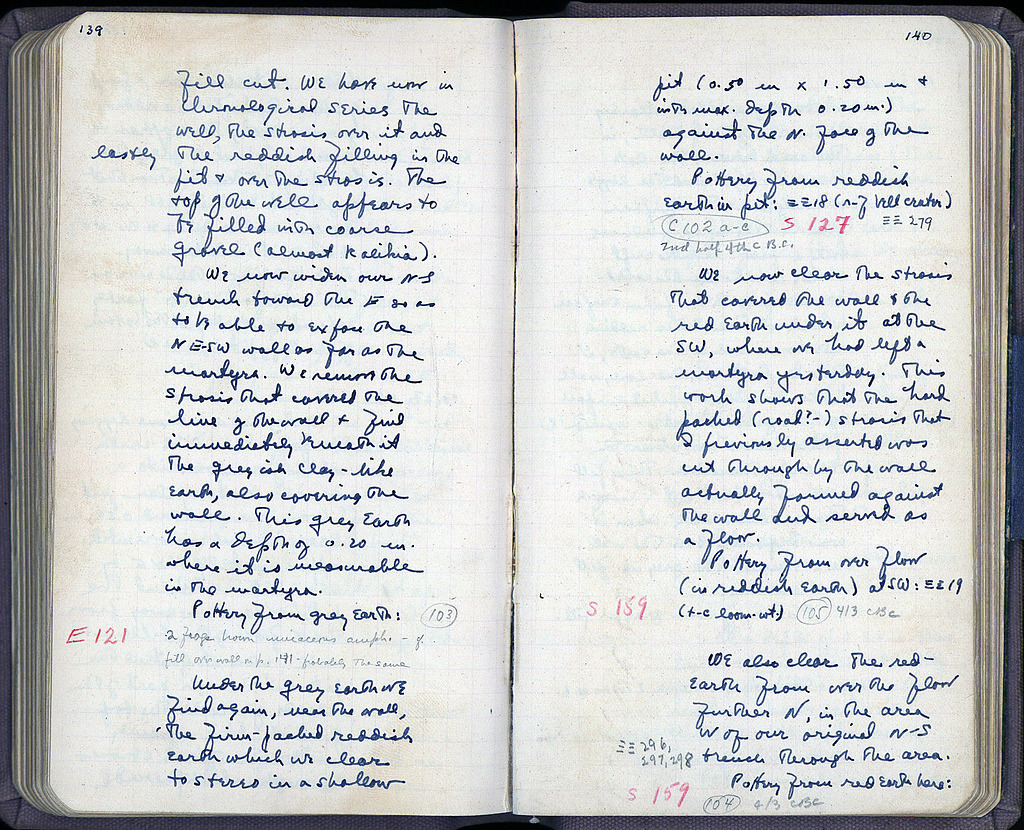 139
fill cut. We have now in
chronological series the
well, the strosis over it and
lastly the reddish filling in the
pit & over the strosis. The
top of the well appears to
be filled with coarse
gravel (almost kalikia).
We now widen our N-S
trench toward the E so as
to be able to expose the
NE-SW wall as far as the
martyra. We remove the
strosis that covered the
line of the wall & find
immediately beneath it
the greyish clay-like
earth, also covering the
wall. This grey earth
has a depth of 0.20 m.
where it is measurable
in the martyra.
Pottery from grey earth: (103)
E 121
2 frags brown micaceous amph. - cf.
fill over wall on p. 141 - probably the same
Under the grey earth we
find again, near the wall,
the firm-packed reddish
earth which we clear
to stereo in a shallow
140
pit (0.50 m x 1.50 m &
with max. depth 0.20 m.)
against the N. face of the
wall.
Pottery from reddish
earth in pit: ΞΞ 18 (r-f bell crater)
C 102 a-c S 127 ΞΞ 279
2nd half 4th c B.C.
We now clear the strosis
that covered the wall & the
red earth under it at the
SW, where we had left a
martyra yesterday. This
work shows that the hard
packed (road?-) strosis that
I previously asserted was
cut through by the wall
actually formed against
the wall and served as
a floor.
Pottery from over floor
(in reddish earth) at SW: ΞΞ 19
S 159 (t-c loom-wt.) (105) 4/3 cBc
We also clear the red-
earth from over the floor
further N, in the area
W of our original N-S
ΞΞ 296,
297, 298 trench through the area.
Pottery from red earth here:
S 159 (104) 4/3 cBc